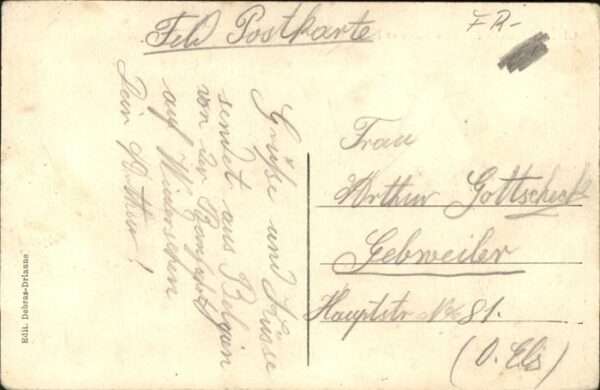 Feld Postkarte
FR-
Grüße und Küsse
sendet aus Belgien
von der Bahnfahrt
auf Wiedersehen
Dein Arthur!
Frau
Arthur Gottscheck
Gebweiler
Hauptstr No 81.
(O. Els)
Edit. Debras-Drianne